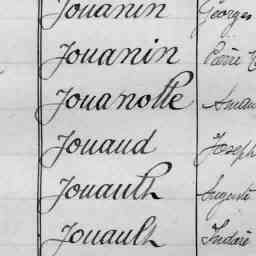 Jouanin Georges
Jouanin Pierre
Jouanolle
Jouaud Joseph
Jouault Auguste
Jouault Isidore